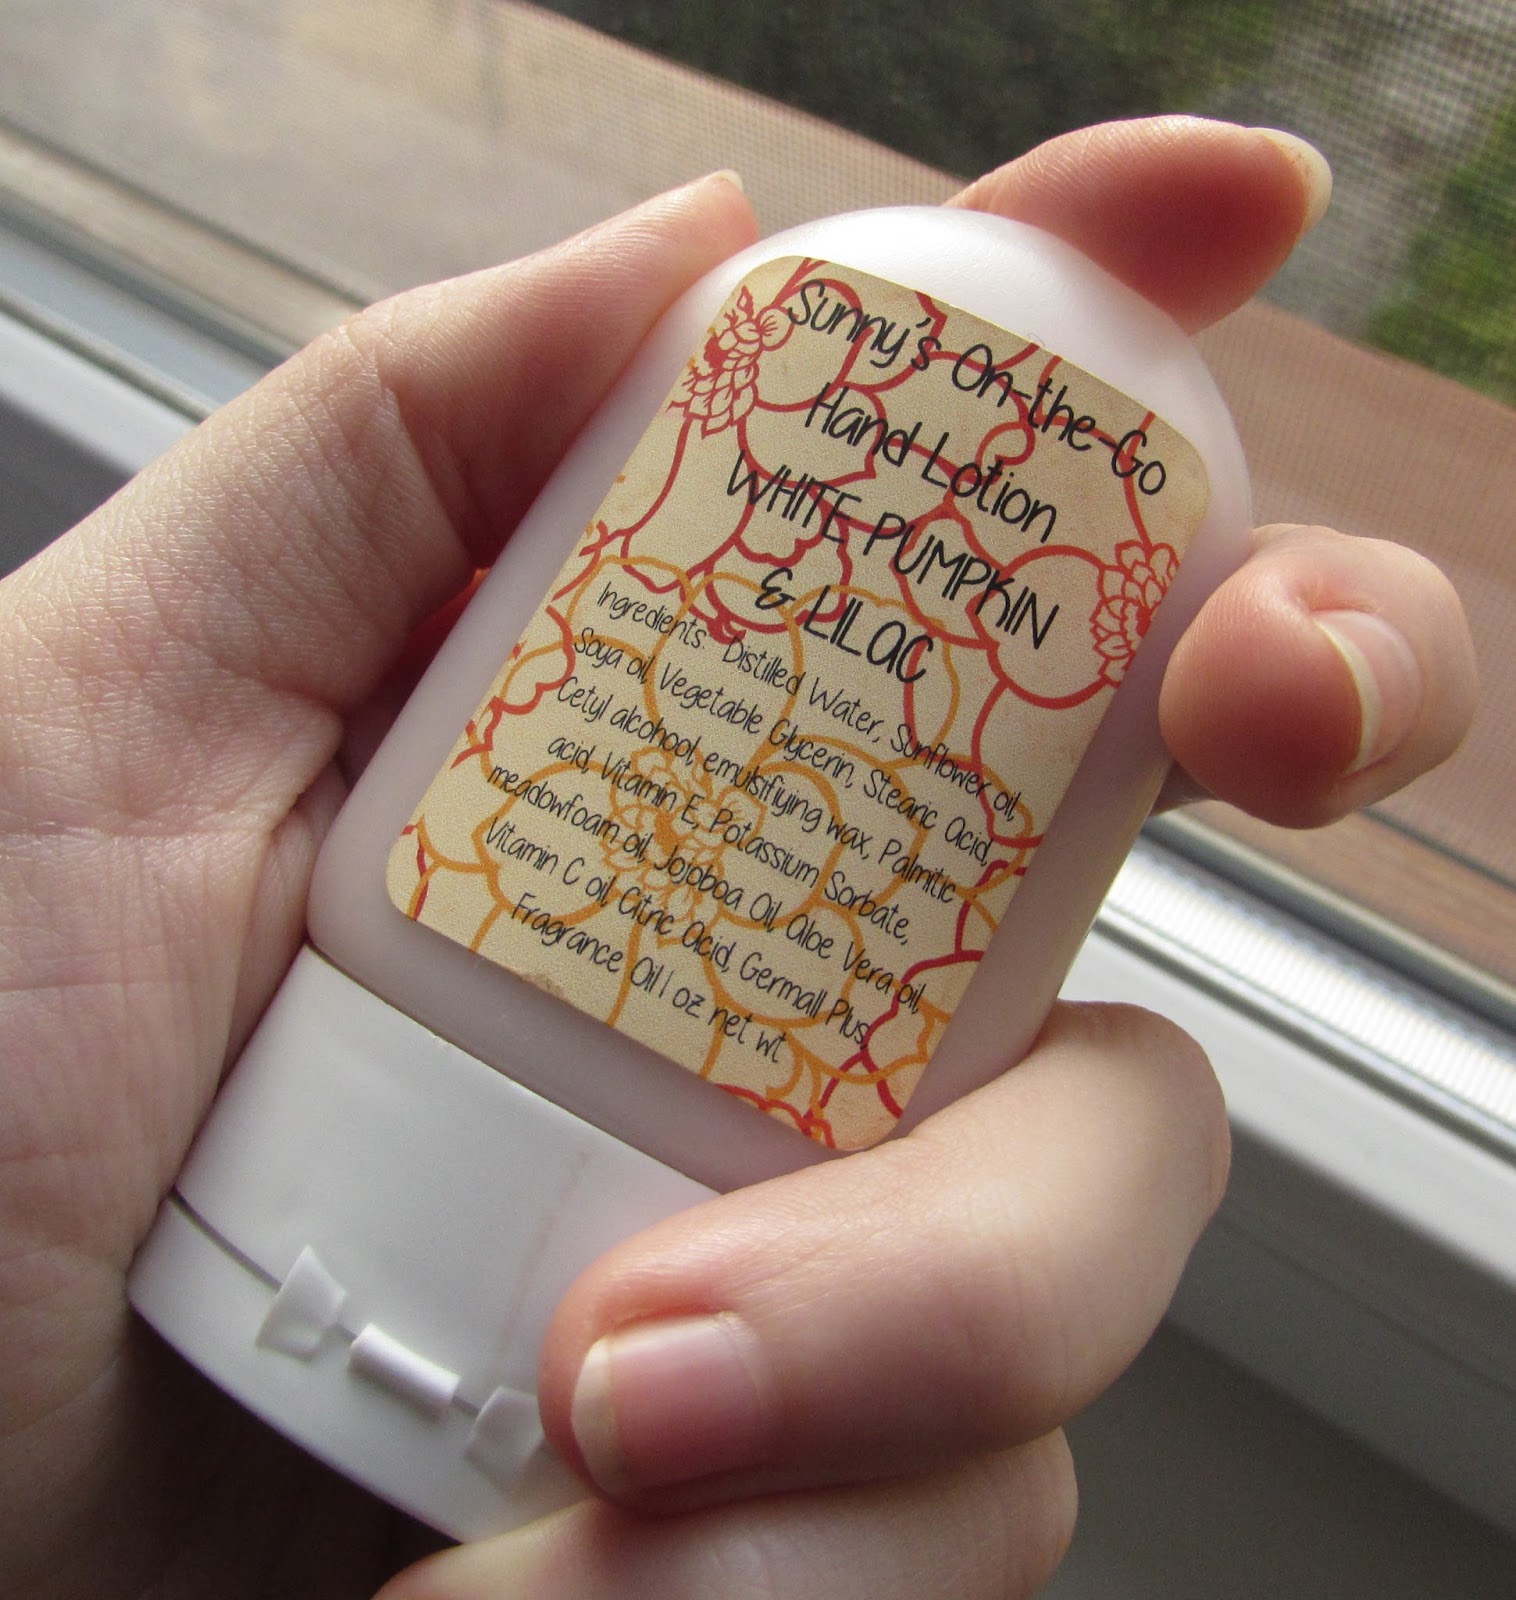 Sunny's On-the-Go
Hand Lotion
WHITE PUMPKIN
& LILAC
Ingredients: Distilled Water, Sunflower oil,
Soya oil, Vegetable Glycerin, Stearic Acid,
Cetyl alcohool, emulsifiying wax, Palmitic
acid, Vitamin E, Potassium Sorbate,
meadowfoam oil, Jojoboa Oil, Aloe Vera oil,
Vitamin C oil, Citric Acid, Germall Plus,
Fragrance Oil 1 oz net wt